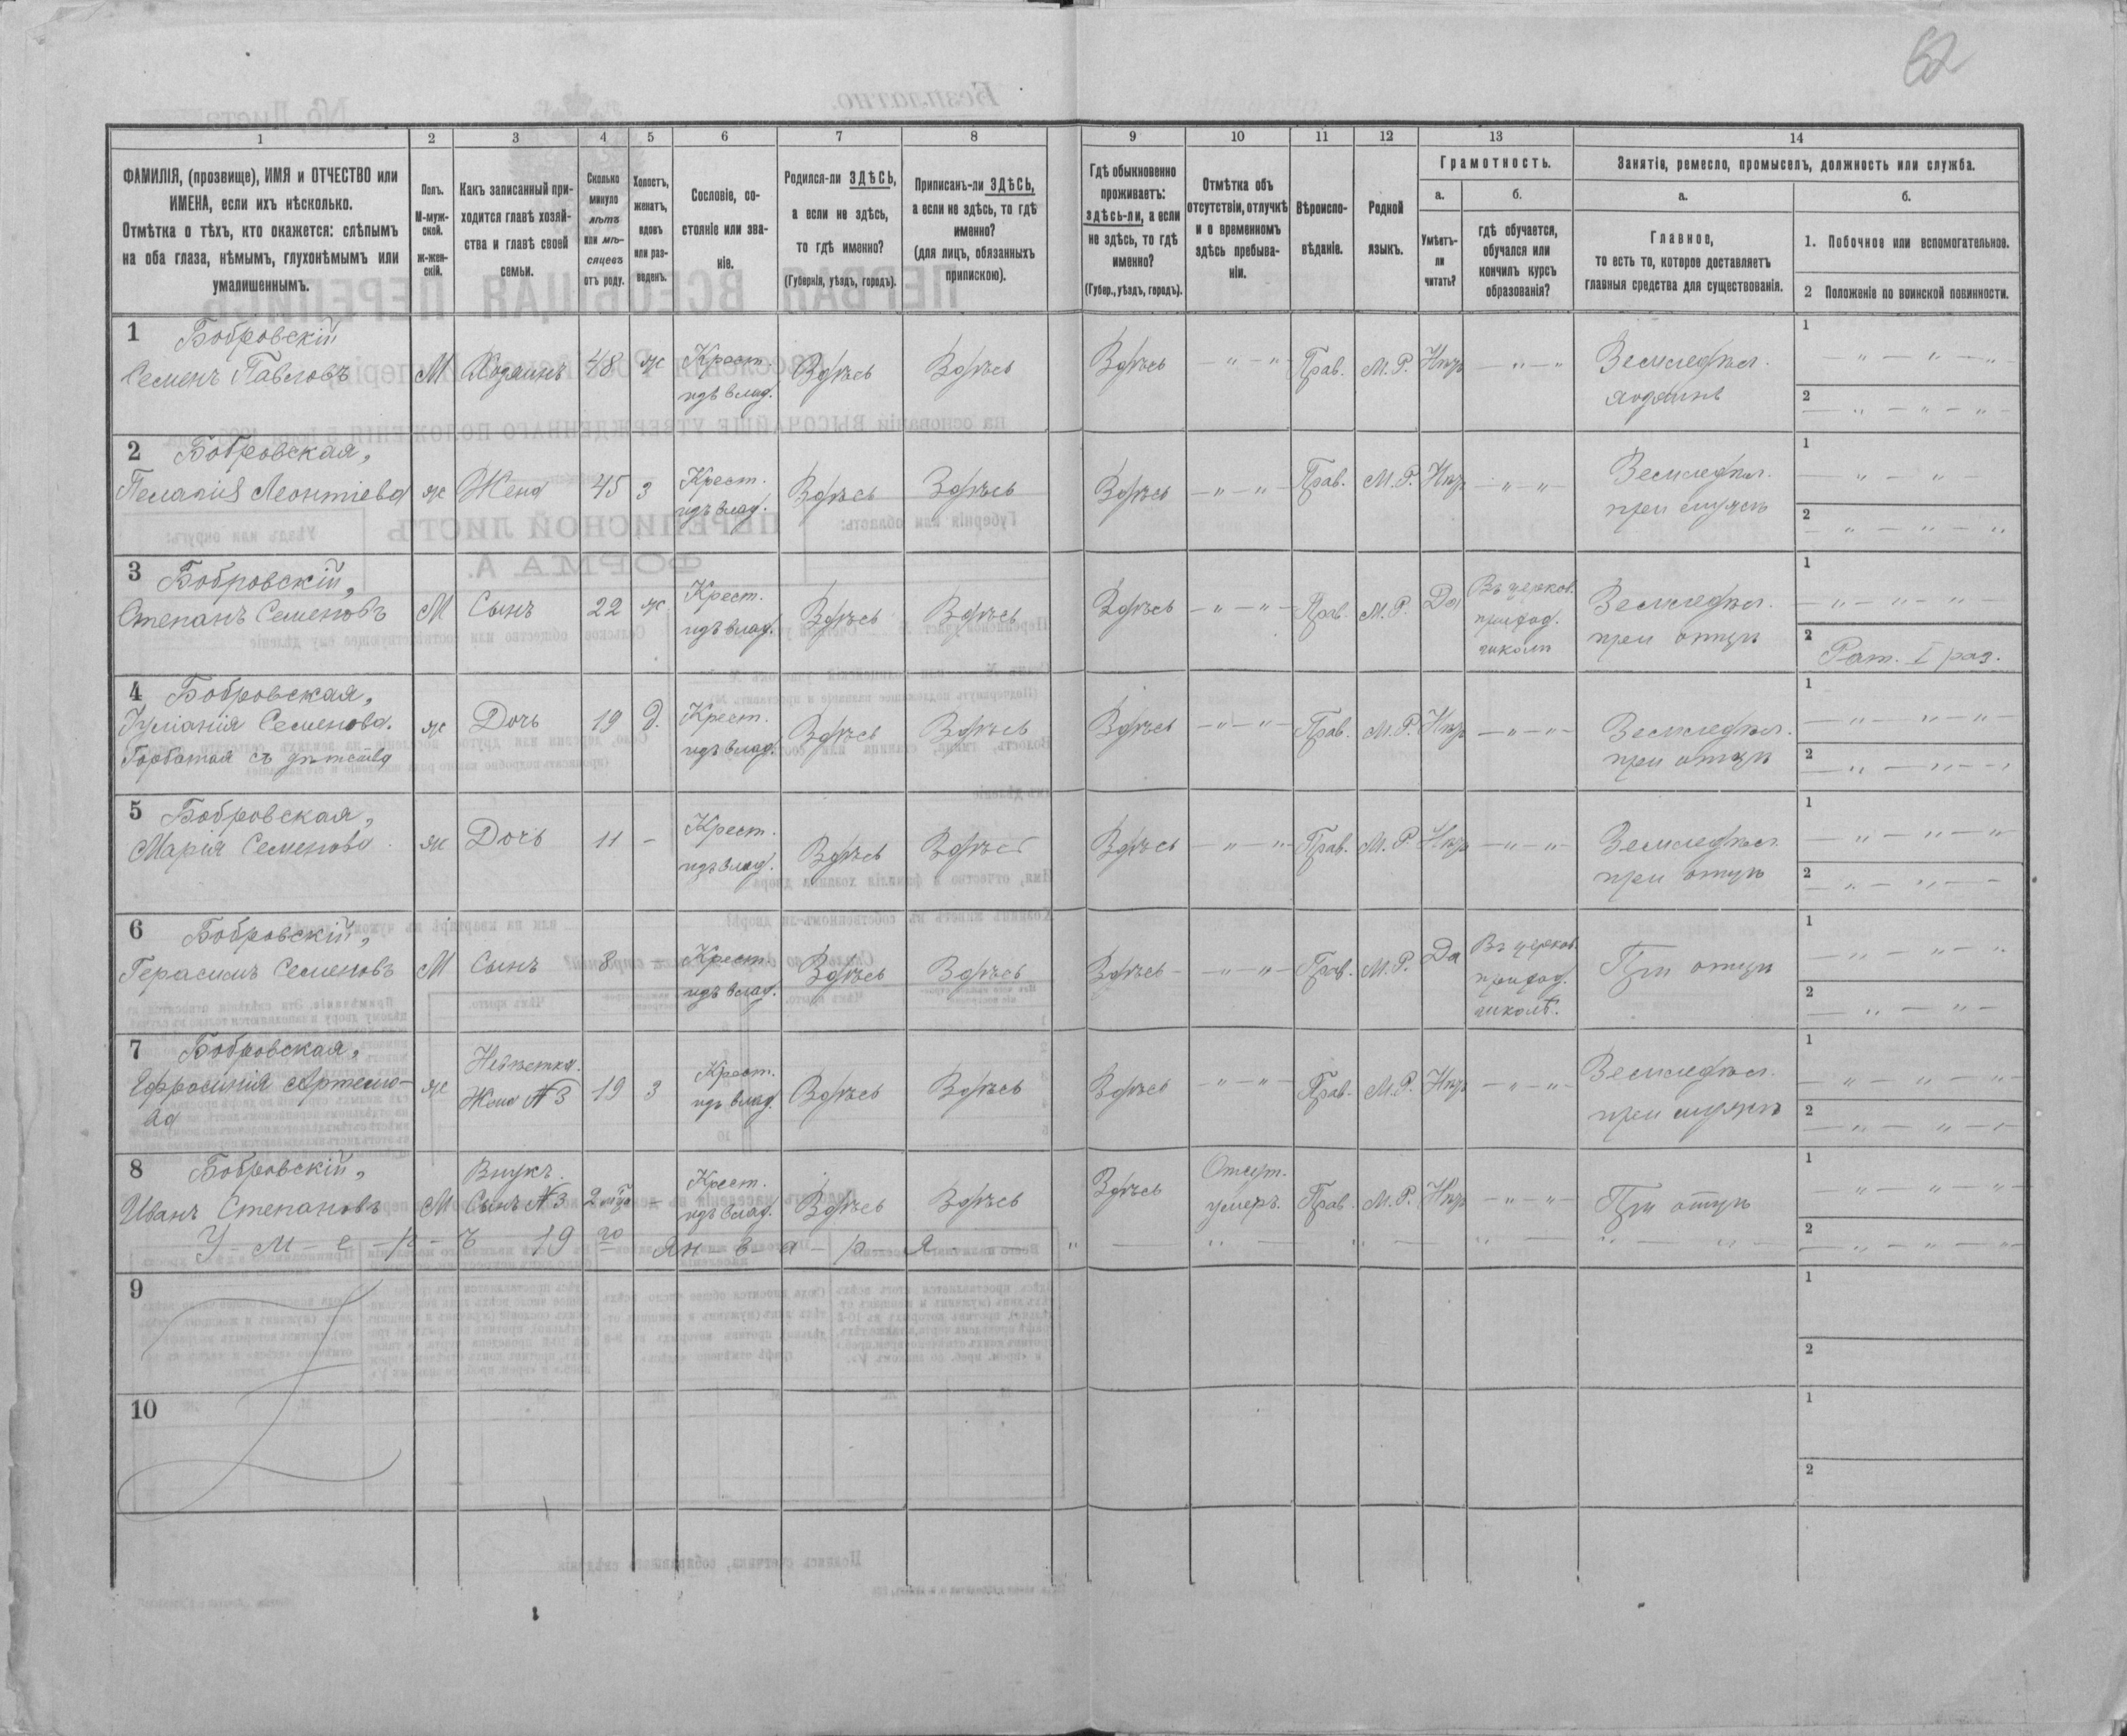 62
1 2 3 4 5 6 7 8 9 10 11 12 13 14
ФАМИЛІЯ, (прозвище), ИМЯ и ОТЧЕСТВО или
ИМЕНА, если ихъ нѣсколько.
Отмѣтка о тѣхъ, кто окажется: слѣпымъ
на оба глаза, нѣмымъ, глухонѣмымъ или
умалишеннымъ.
Полъ.
М-муж-
ской.
Ж-жен-
скій.
Какъ записанный при-
ходится главѣ хозяй-
ства и главѣ своей
семьи.
Сколько
минуло
лѣтъ
или мѣ-
сяцевъ
отъ роду.
Холостъ,
женатъ,
вдовъ
или раз-
веденъ.
Сословіе, со-
стояніе или зва-
ніе.
Родился-ли ЗДѢСЬ,
а если не здѣсь,
то гдѣ именно?
(Губернія, уѣздъ, городъ).
Приписанъ-ли ЗДѢСЬ,
а если не здѣсь, то гдѣ
именно?
(для лицъ, обязанныхъ
припискою).
Гдѣ обыкновенно
проживаетъ:
здѣсь-ли, а если
не здѣсь, то гдѣ
именно?
(Губер., уѣздъ, городъ).
Отмѣтка объ
отсутствіи, отлучкѣ
и о временномъ
здѣсь пребыва-
ніи.
Вѣроиспо-
вѣданіе.
Родной
языкъ.
Грамотность.
а.
Умѣетъ-
ли
читать?
б.
гдѣ обучается,
обучался или
кончилъ курсъ
образованія?
Занятіе, ремесло, промыселъ, должность или служба.
а.
Главное,
то есть то, которое доставляетъ
главныя средства для существованія.
б.
1. Побочное или вспомогательное.
2 Положеніе по воинской повинности.
1 Бобровскій
Семенъ Павловъ М Хозяинъ 48 ж Крест. изъ влад. Здѣсь Здѣсь Здѣсь — „ — „ — Прав. М. Р. Нѣтъ — „ — „ Земледѣл. хозяинъ
1 „ — „ — „
2 — „ — „ — „ —
2 Бобровская,
Пелагія Леонтіева ж Жена 45 з Крест. изъ влад. Здѣсь Здѣсь Здѣсь — „ — „ — Прав. М. Р. Нѣтъ — „ — „ — Земледѣл. при мужѣ
1 — „ — „ —
2 — „ — „ — „
3 Бобровскій,
Степанъ Семеновъ М Сынъ 22 ж Крест. изъ влад. Здѣсь Здѣсь Здѣсь — „ — „ — Прав. М. Р. Да Въ церков. приход. школѣ Земледѣл. при отцѣ
1 — „ — „ — „ —
2 Рат. I раз.
4 Бобровская,
Іуліанія Семенова.
Горбатая съ дѣтства ж Дочь 19 д. Крест. изъ влад. Здѣсь Здѣсь Здѣсь — „ — „ — Прав. М. Р. Нѣтъ — „ — „ — Земледѣл. при отцѣ
1 — „ — „ — „ —
2 — „ — „ — „
5 Бобровская,
Марія Семенова ж Дочь 11 — Крест. изъ влад. Здѣсь Здѣсь Здѣсь — „ — „ — Прав. М. Р. Нѣтъ — „ — „ — Земледѣл. при отцѣ
1 — „ — „ — „
2 — „ — „ —
6 Бобровскій,
Герасимъ Семеновъ М Сынъ 8 — Крест. изъ влад. Здѣсь Здѣсь Здѣсь — „ — „ — Прав. М. Р. Да Въ церков. приход. школѣ. При отцѣ
1 — „ — „ — „
2 — „ — „ —
7 Бобровская,
Ефросинія Артемо-
ва ж Невѣстка. Жена №3 19 з Крест. изъ влад. Здѣсь Здѣсь Здѣсь — „ — „ — Прав. М. Р. Нѣтъ — „ — „ — Земледѣл. при мужѣ
1 — „ — „ — „ —
2 — „ — „ — „
8 Бобровскій,
Иванъ Степановъ М Внукъ. Сынъ №3 2 — Крест. изъ влад. Здѣсь Здѣсь Здѣсь Отсут. умеръ. Прав. М. Р. Нѣтъ — „ — „ — При отцѣ
У – м – е – р – ъ 19 го Ян – в – а – р – я
1 — „ — „ — „
2 — „ — „ — „
9
1
2
10
1
2